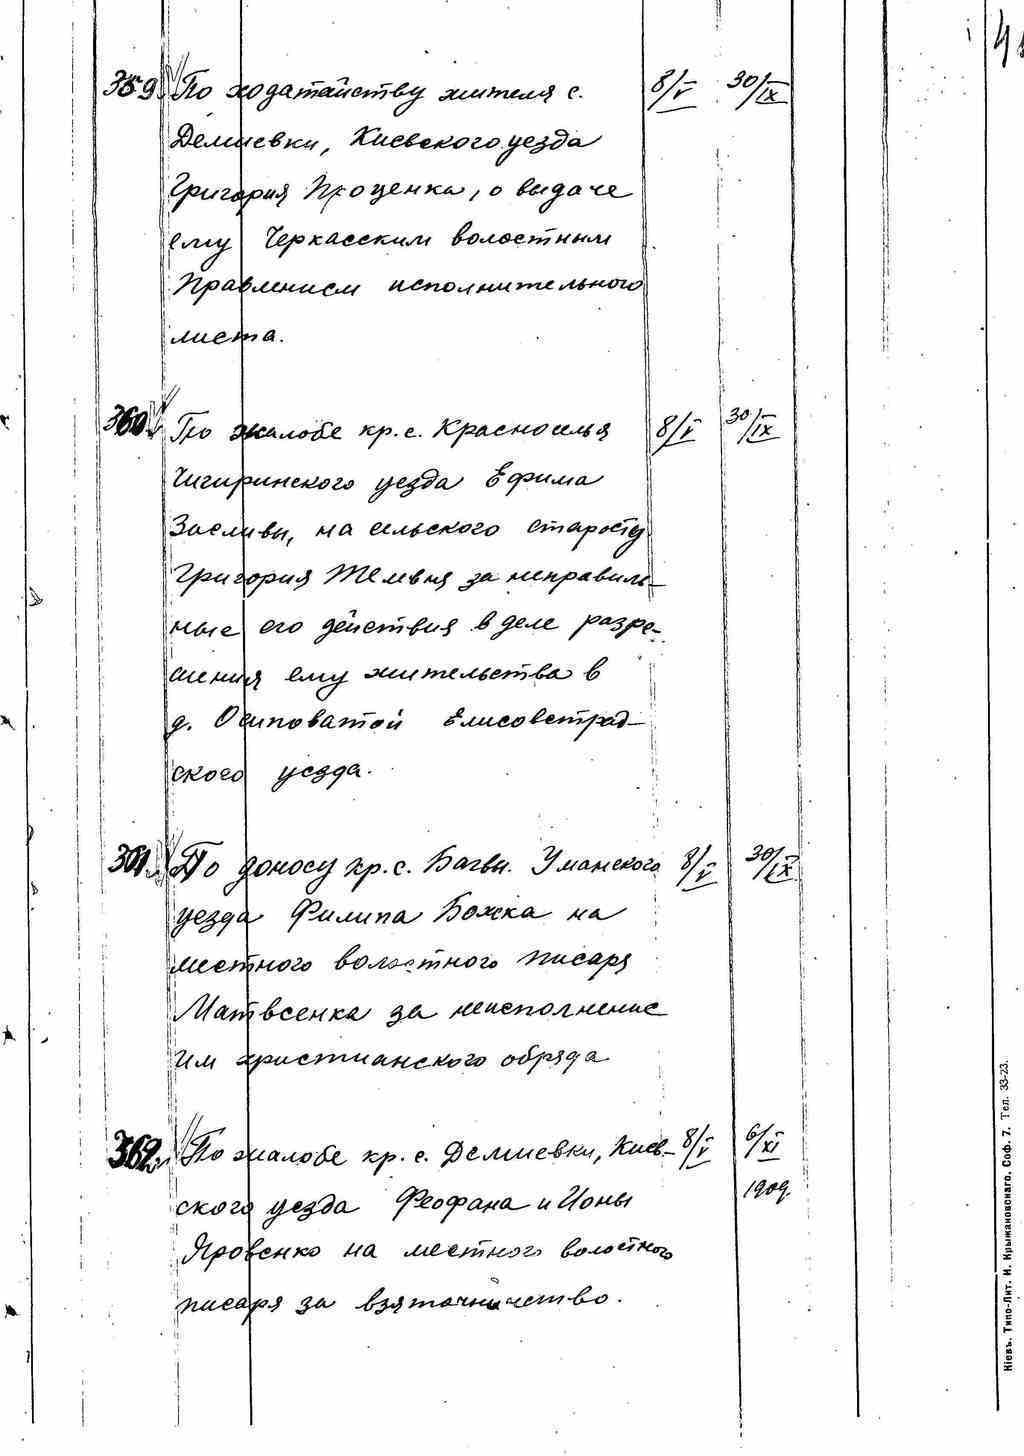 359. По ходатайству жителя с. 8/V 30/IX
Демиевки, Киевского уезда
Григория Проценка, о выдаче
ему Черкасским волостным
Правлением исполнительного
листа.
360. По жалобе кр. с. Красноселья 8/V 30/IX
Чигиринского уезда Ефима
Засливы, на сельского старосту
Григория Желевня за неправиль-
ные его действия в деле разре-
шения ему жительства в
д. Осиповатой Елисоветград-
ского уезда.
361. По доносу кр. с. Багвы. Уманского 8/V 30/IX
уезда Филипа Божка на
местного волостного писаря
Матвеенка за неисполнение
им христианского обряда
362. По жалобе кр. с. Демиевки, Киев- 8/V 6/XI
ского уезда Феофана и Ионы 1909.
Яровенко на местного волостного
писаря за взяточничество.
Кіевъ. Типо-Лит. И. Крыжановскаго. Соф. 7. Тел. 33-23.